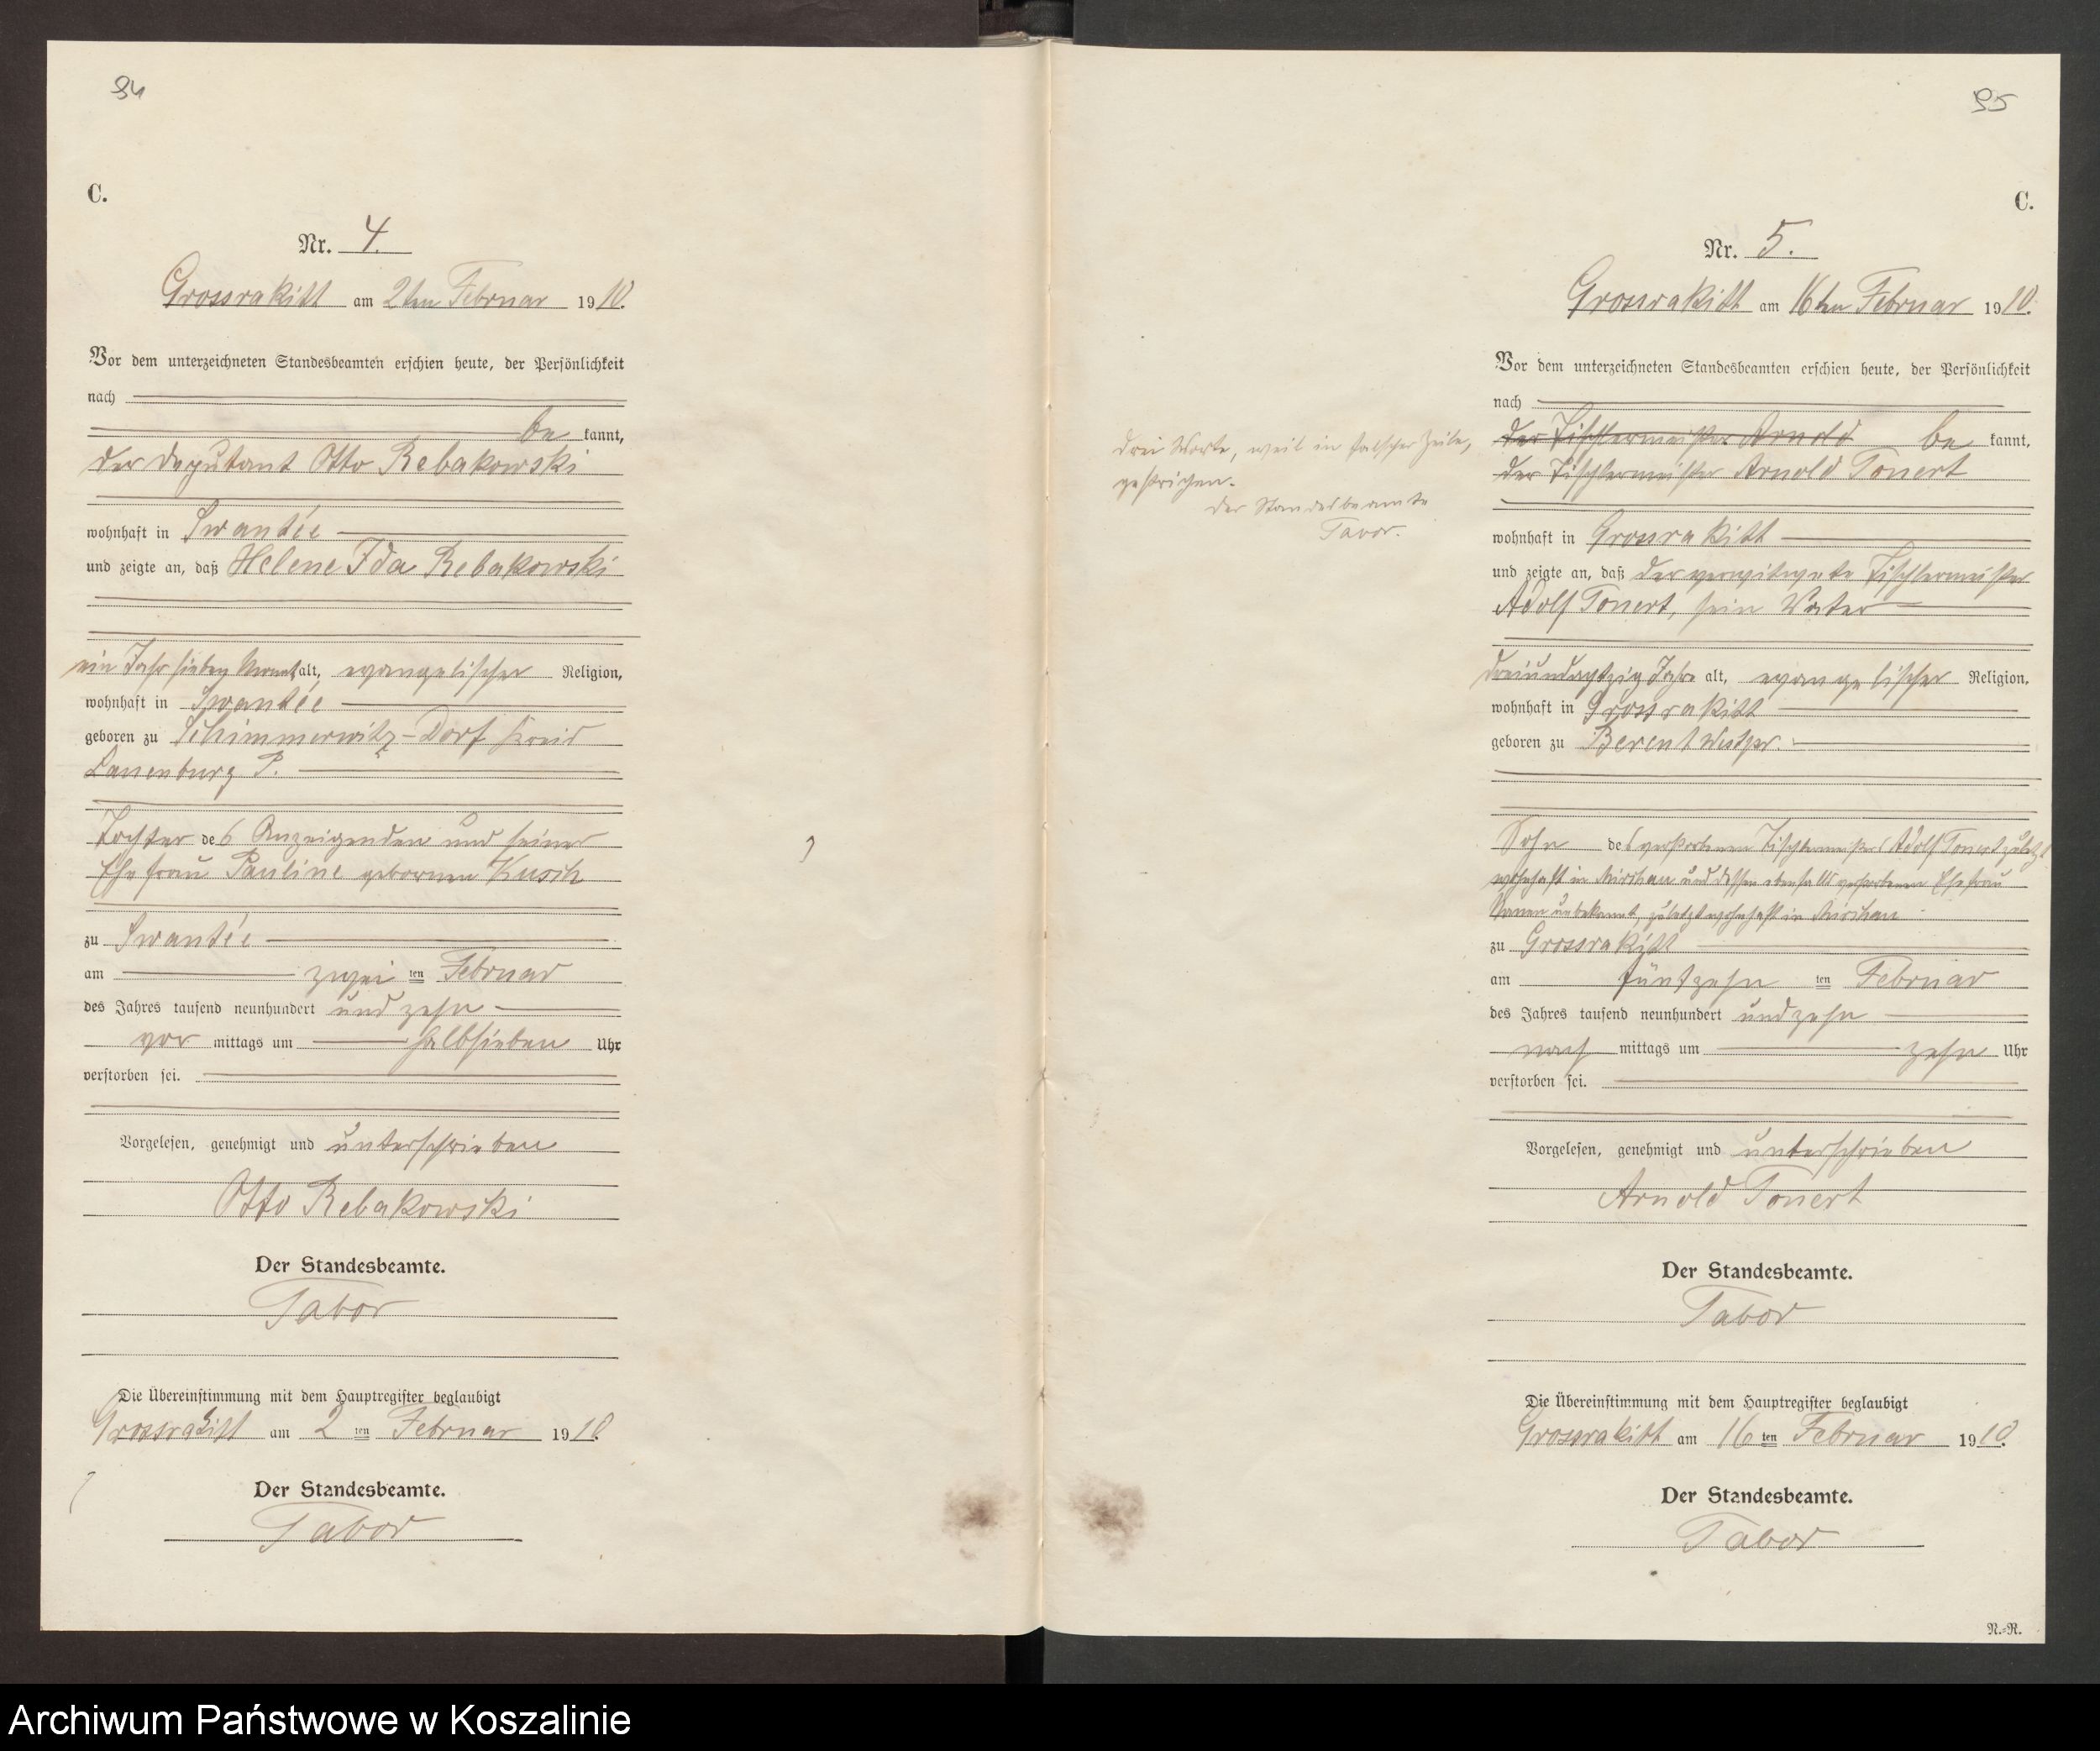 94
C.
Nr. 4.
Grossrakitt am 2ten Februar 1910.
Vor dem unterzeichneten Standesbeamten erschien heute, der Persönlichkeit
nach
be kannt,
der Deputant Otto Rebakowski
wohnhaft in Swantée
und zeigte an, daß Helene Ida Rebakowski
ein Jahr sieben Monat alt, evangelischer Religion,
wohnhaft in Swantée
geboren zu Schimmerwitz-Dorf Kreis
Lauenburg P.
Tochter des Anzeigenden und seiner
Ehefrau Pauline gebornen Kusch
zu Swantée
am zwei ten Februar
des Jahres tausend neunhundert und zehn
vor mittags um halbsieben Uhr
verstorben sei.
Vorgelesen, genehmigt und unterschrieben
Otto Rebakowski
Der Standesbeamte.
Tabor
Die Übereinstimmung mit dem Hauptregister beglaubigt
Grossrakitt am 2 ten Februar 1910.
Der Standesbeamte.
Tabor
95
C.
Nr. 5.
Grossrakitt am 16ten Februar 1910.
Vor dem unterzeichneten Standesbeamten erschien heute, der Persönlichkeit
nach
der Tischlermeister Arnold be kannt,
der Tischlermeister Arnold Tonert
Drei Worte, weil in falscher Zeile,
gestrichen.
Der Standesbeamte
Tabor.
wohnhaft in Grossrakitt
und zeigte an, daß der verwitwete Tischlermeister
Adolf Tonert, sein Vater
dreiundachtzig Jahre alt, evangelischer Religion,
wohnhaft in Grossrakitt
geboren zu Berent Westpr.
Sohn des verstorbenen Tischlermeisters Adolf Tonert zuletzt
wohnhaft in Mirchau und dessen ebenfalls verstorbenen Ehefrau
Namen unbekannt, zuletzt wohnhaft in Mirchau
zu Grossrakitt
am fünfzehn ten Februar
des Jahres tausend neunhundert und zehn
nach mittags um zehn Uhr
verstorben sei.
Vorgelesen, genehmigt und unterschrieben
Arnold Tonert
Der Standesbeamte.
Tabor
Die Übereinstimmung mit dem Hauptregister beglaubigt
Grossrakitt am 16 ten Februar 1910.
Der Standesbeamte.
Tabor
N.-R.
Archiwum Państwowe w Koszalinie